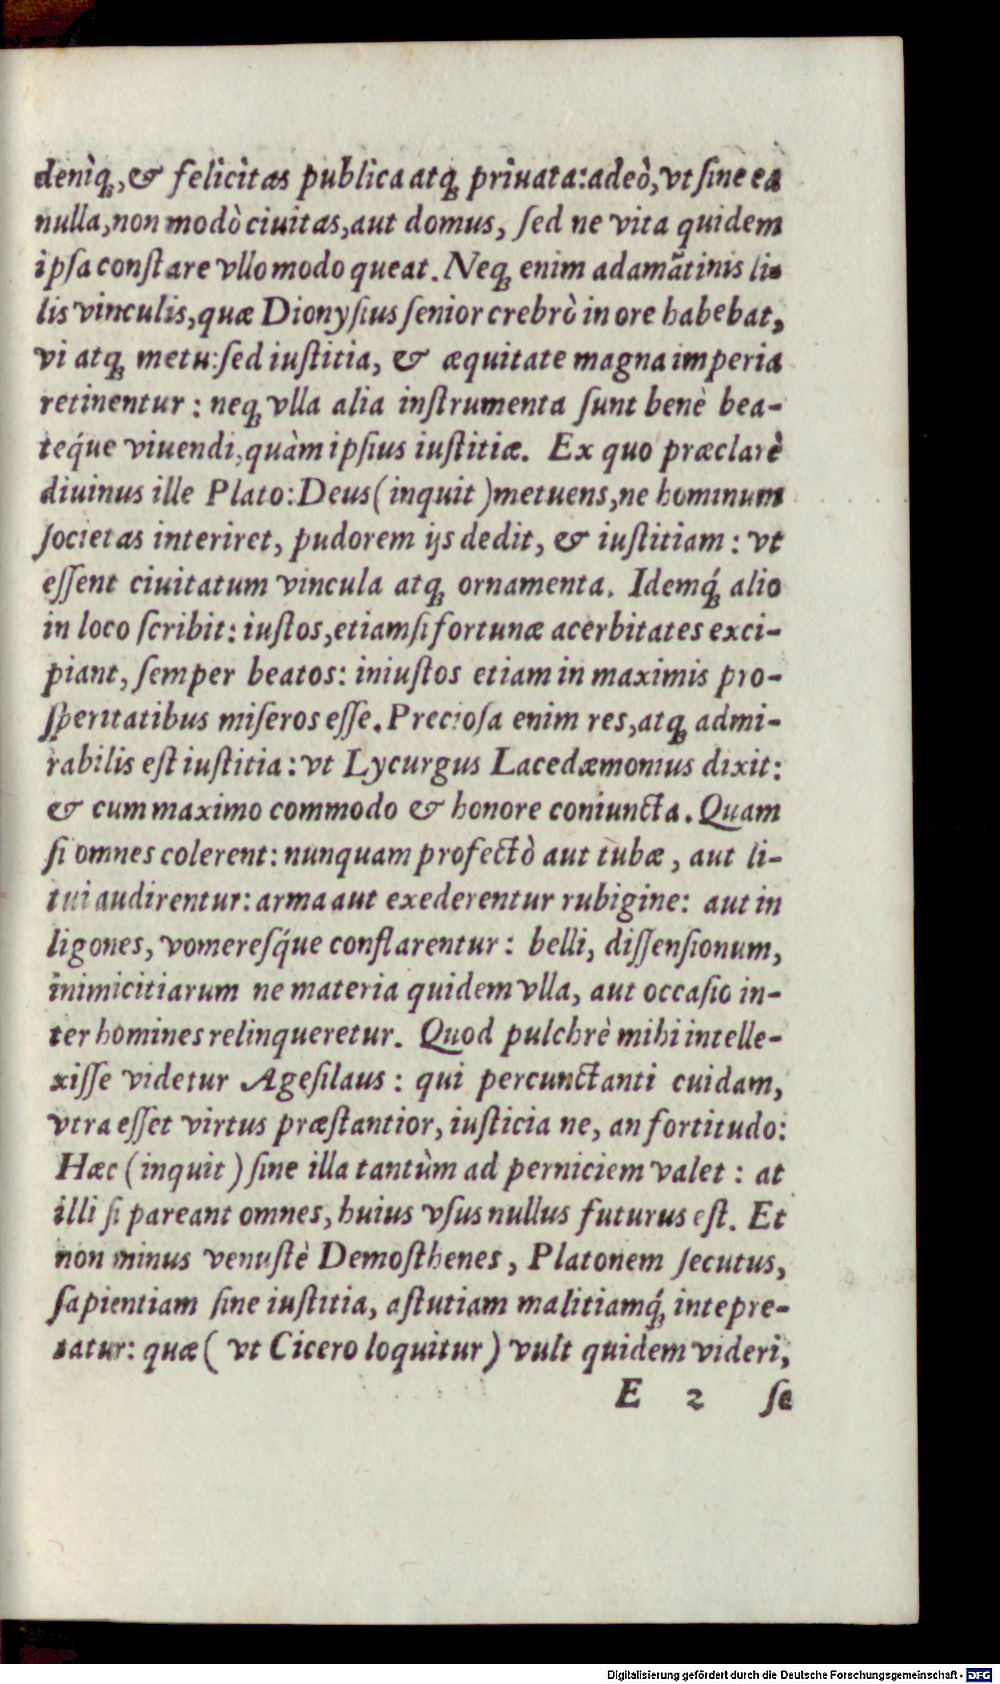 deniq́;, & felicitas publica atq; priuata: adeò, vt sine ea
nulla, non modò ciuitas, aut domus, sed ne vita quidem
ipsa constare vllo modo queat. Neq; enim adamãtinis il-
lis vinculis, quæ Dionysius senior crebrò in ore habebat,
vi atq; metu: sed iustitia, & æquitate magna imperia
retinentur: neq; vlla alia instrumenta sunt benè bea-
teq́ue viuendi, quàm ipsius iustitiæ. Ex quo præclarè
diuinus ille Plato: Deus (inquit) metuens, ne hominum
societas interiret, pudorem ijs dedit, & iustitiam: vt
essent ciuitatum vincula atq; ornamenta. Idemq́; alio
in loco scribit: iustos, etiamsi fortunæ acerbitates exci-
piant, semper beatos: iniustos etiam in maximis pro-
speritatibus miseros esse. Preciosa enim res, atq; admi-
rabilis est iustitia: vt Lycurgus Lacedæmonius dixit:
& cum maximo commodo & honore coniuncta. Quam
si omnes colerent: nunquam profectò aut tubæ, aut li-
tui audirentur: arma aut exederentur rubigine: aut in
ligones, vomeresq́ue conflarentur: belli, dissensionum,
inimicitiarum ne materia quidem vlla, aut occasio in-
ter homines relinqueretur. Quod pulchrè mihi intelle-
xisse videtur Agesilaus: qui percunctanti cuidam,
vtra esset virtus præstantior, iusticia ne, an fortitudo:
Hæc (inquit) sine illa tantùm ad perniciem valet: at
illi si pareant omnes, huius vsus nullus futurus est. Et
non minus venustè Demosthenes, Platonem secutus,
sapientiam sine iustitia, astutiam malitiamq́; intepre-
tatur: quæ (vt Cicero loquitur) vult quidem videri,
E 2 se
Digitalisierung gefördert durch die Deutsche Forschungsgemeinschaft - DFG